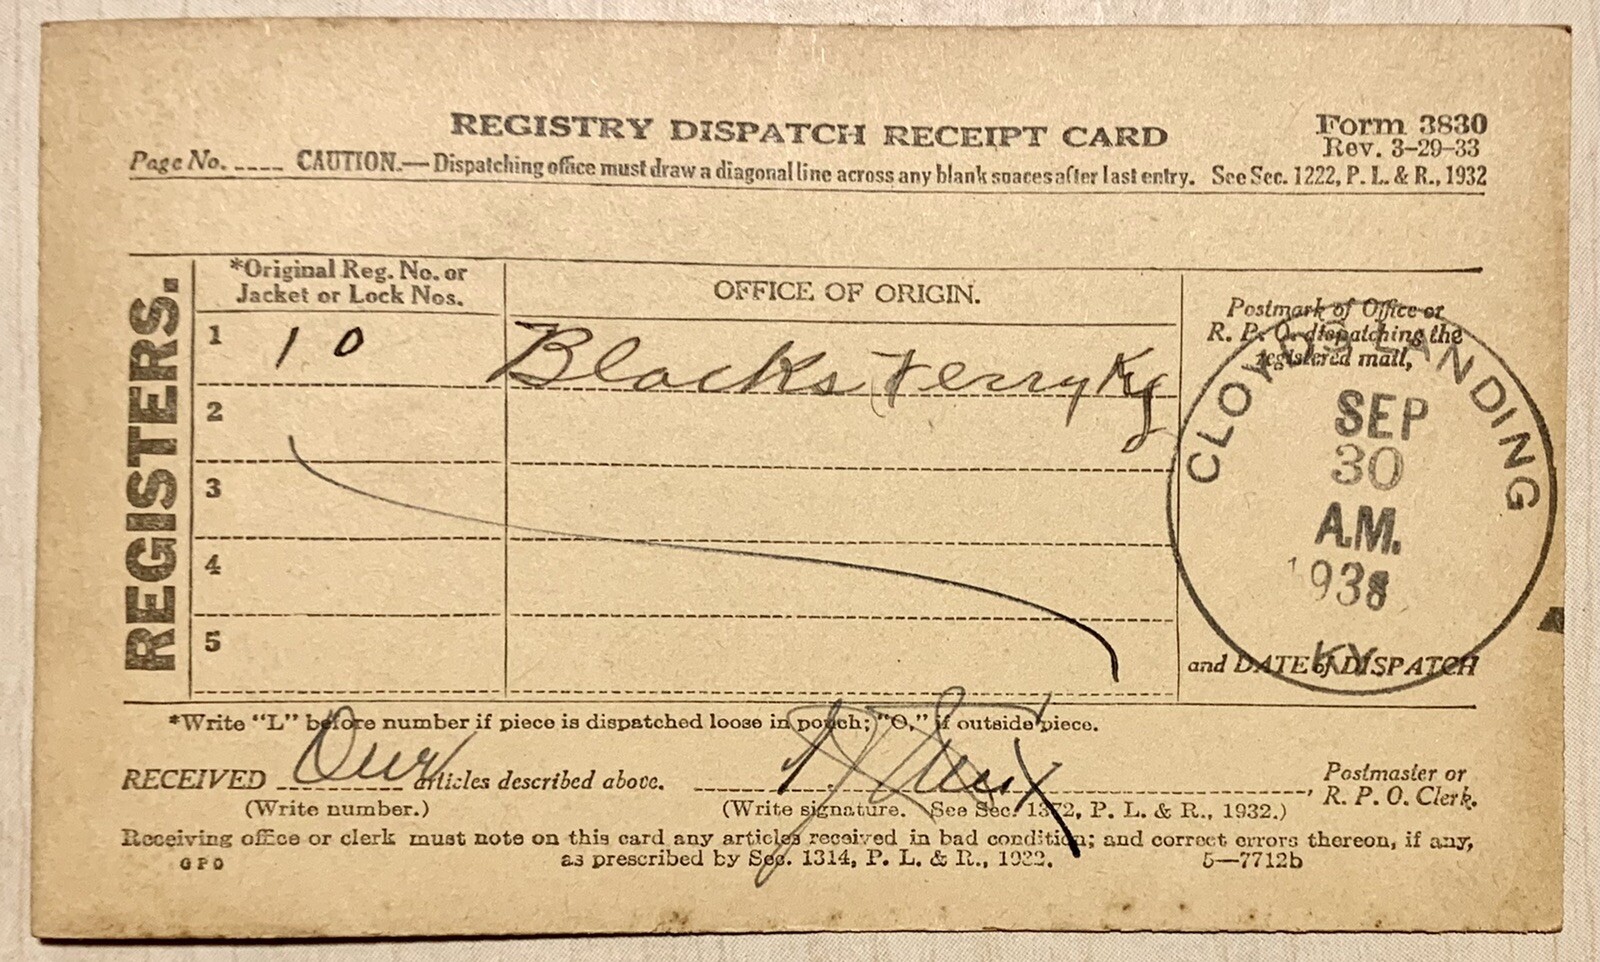 REGISTRY DISPATCH RECEIPT CARD
Form 3830
Rev. 3-29-33
Page No. ---- CAUTION.—Dispatching office must draw a diagonal line across any blank spaces after last entry. See Sec. 1222, P. L. & R., 1932
REGISTERS.
*Original Reg. No. or
Jacket or Lock Nos.
OFFICE OF ORIGIN.
Postmark of Office or
R. P. O. dispatching the
registered mail,
1 10 Blacks Ferry Ky
2
3
4
5
CLOYDS LANDING
SEP
30
A.M.
1938
KY.
and DATE of DISPATCH
*Write "L" before number if piece is dispatched loose in pouch; "O," if outside piece.
RECEIVED articles described above.
Postmaster or
R. P. O. Clerk.
(Write number.) (Write signature. See Sec. 1372, P. L. & R., 1932.)
Receiving office or clerk must note on this card any articles received in bad condition; and correct errors thereon, if any,
as prescribed by Sec. 1314, P. L. & R., 1932.
GPO
5—7712b